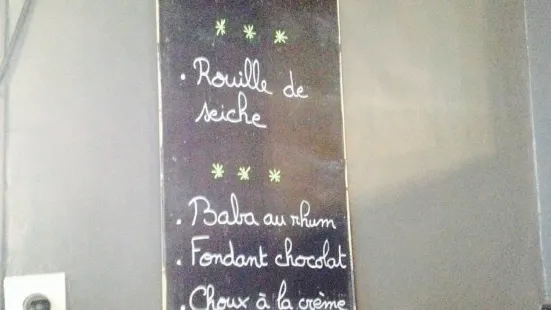 * * *
. Rouille de
seiche
* * *
. Baba au rhum
. Fondant chocolat
. Choux à la crème